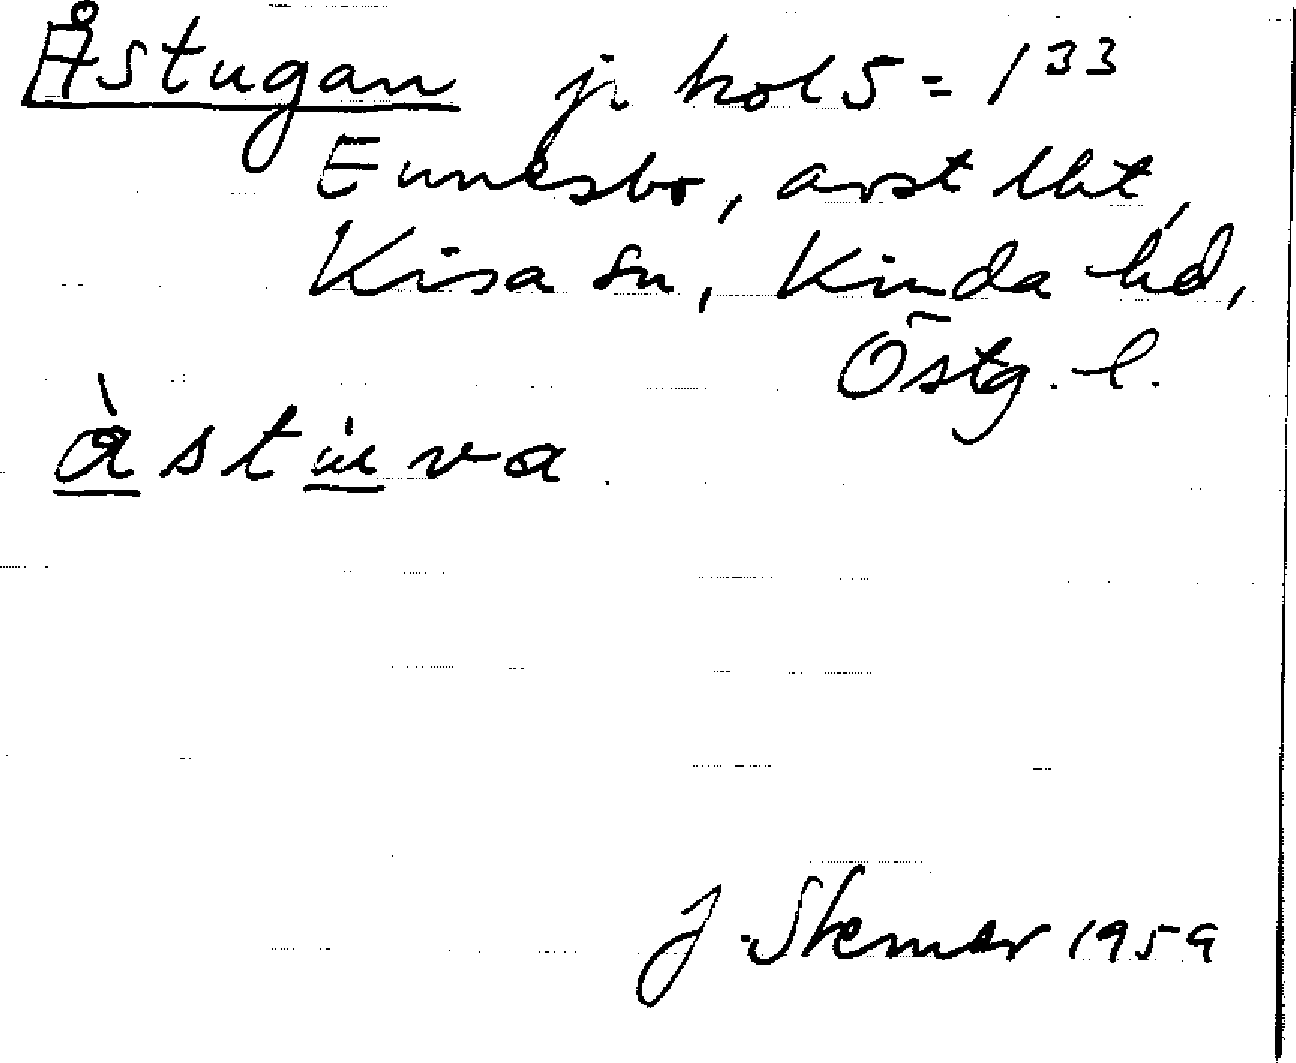 Åstugan jr kol 5 = 1³³
Emmesbo, avst lht,
Kisa sn, Kinda hd,
Östg. l.
àstu̇va
J. Stemar 1959